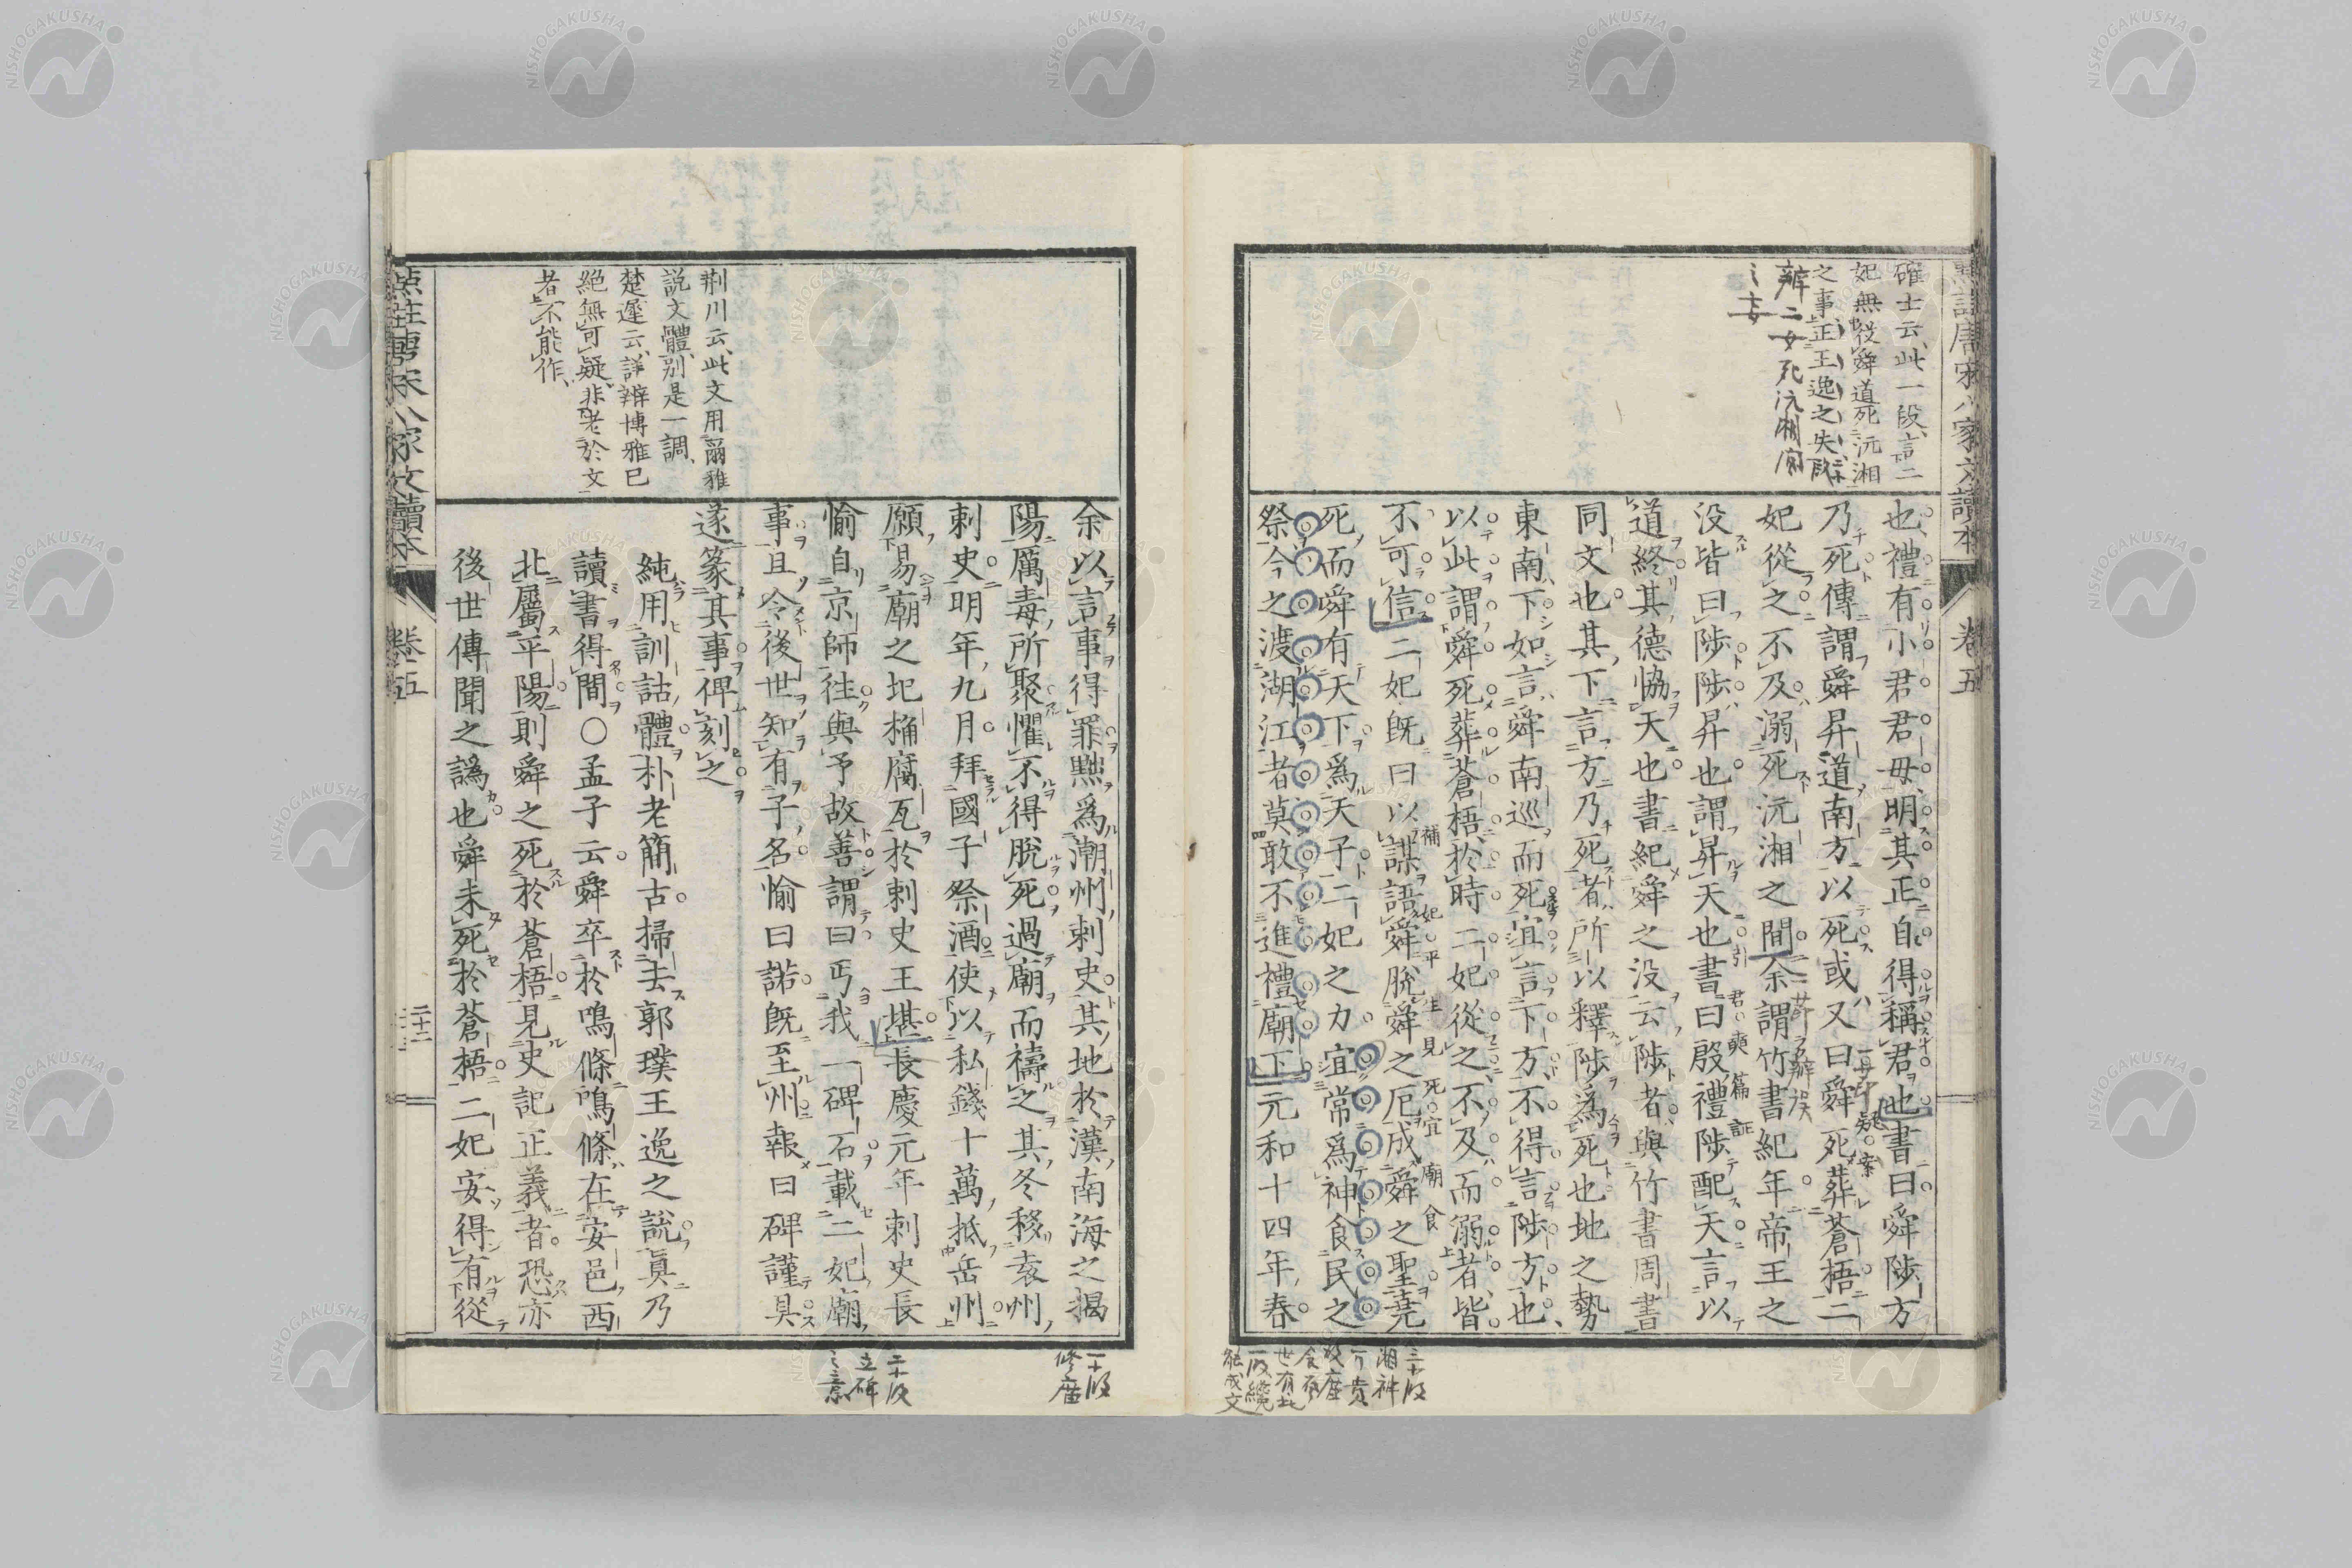 確士云、此一段、言二
妃無從舜道死沅湘
之事、正王逸之失
辨二女死沅湘間
之妄
也、禮有小君君母、明其正自得稱君也書曰舜陟方
乃死傳謂舜昇道南方以死或又曰舜死葬蒼梧二
妃從之不及溺死沅湘之間余謂竹書紀年帝王之
没皆曰陟陟昇也謂昇天也書曰殷禮陟配天言以
道終其德協天也書紀舜之没云陟者與竹書周書
同文也其下言方乃死者所以釋陟為死也地之勢
東南下如言舜南巡而死宜言下方不得言陟方也、
以此謂舜死葬蒼梧、於時二妃從之不及而溺者、皆
不可信二妃既曰以謀語舜脫舜之厄成舜之聖堯
死而舜有天下為天子二妃之力宜常為神食民之
祭今之渡湖江者莫敢不進禮廟下元和十四年春
三十段
湘神
余以言事得罪黜為潮州刺史其地於漢南海之揭
陽厲毒所聚懼不得脫死過廟而禱之其冬移袁州
刺史明年九月拜國子祭酒使以私錢十萬抵岳州
願易廟之圮桷腐瓦於刺史王堪長慶元年刺史長
愉自京師往與予故善謂曰丐我一碑石載二妃廟
事且令後世知有子名愉曰諾既至州報曰碑謹具
遂篆其事俾刻之
純用訓詁體朴老簡古掃去郭璞王逸之說真乃
讀書得間○孟子云舜卒於鳴條鳴條在安邑西
北屬平陽則舜之死於蒼梧見史記正義者恐亦
後世傳聞之譌也舜未死於蒼梧二妃安得有從
荆川云、此文用爾雅
說文體、別是一調、
楚遲云、詳辨博雅已
絕無可疑、非老於文
者不能作、
二十段
立碑
之意
卷五
二十二
NISHOGAKUSHA